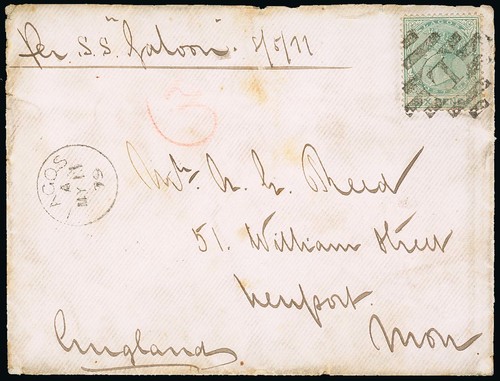 Per S.S. "Gaboon".
LAGOS
SIX PENCE
L
LAGOS
A
MY 11
79
51. William Street
Newport.
Mon
England